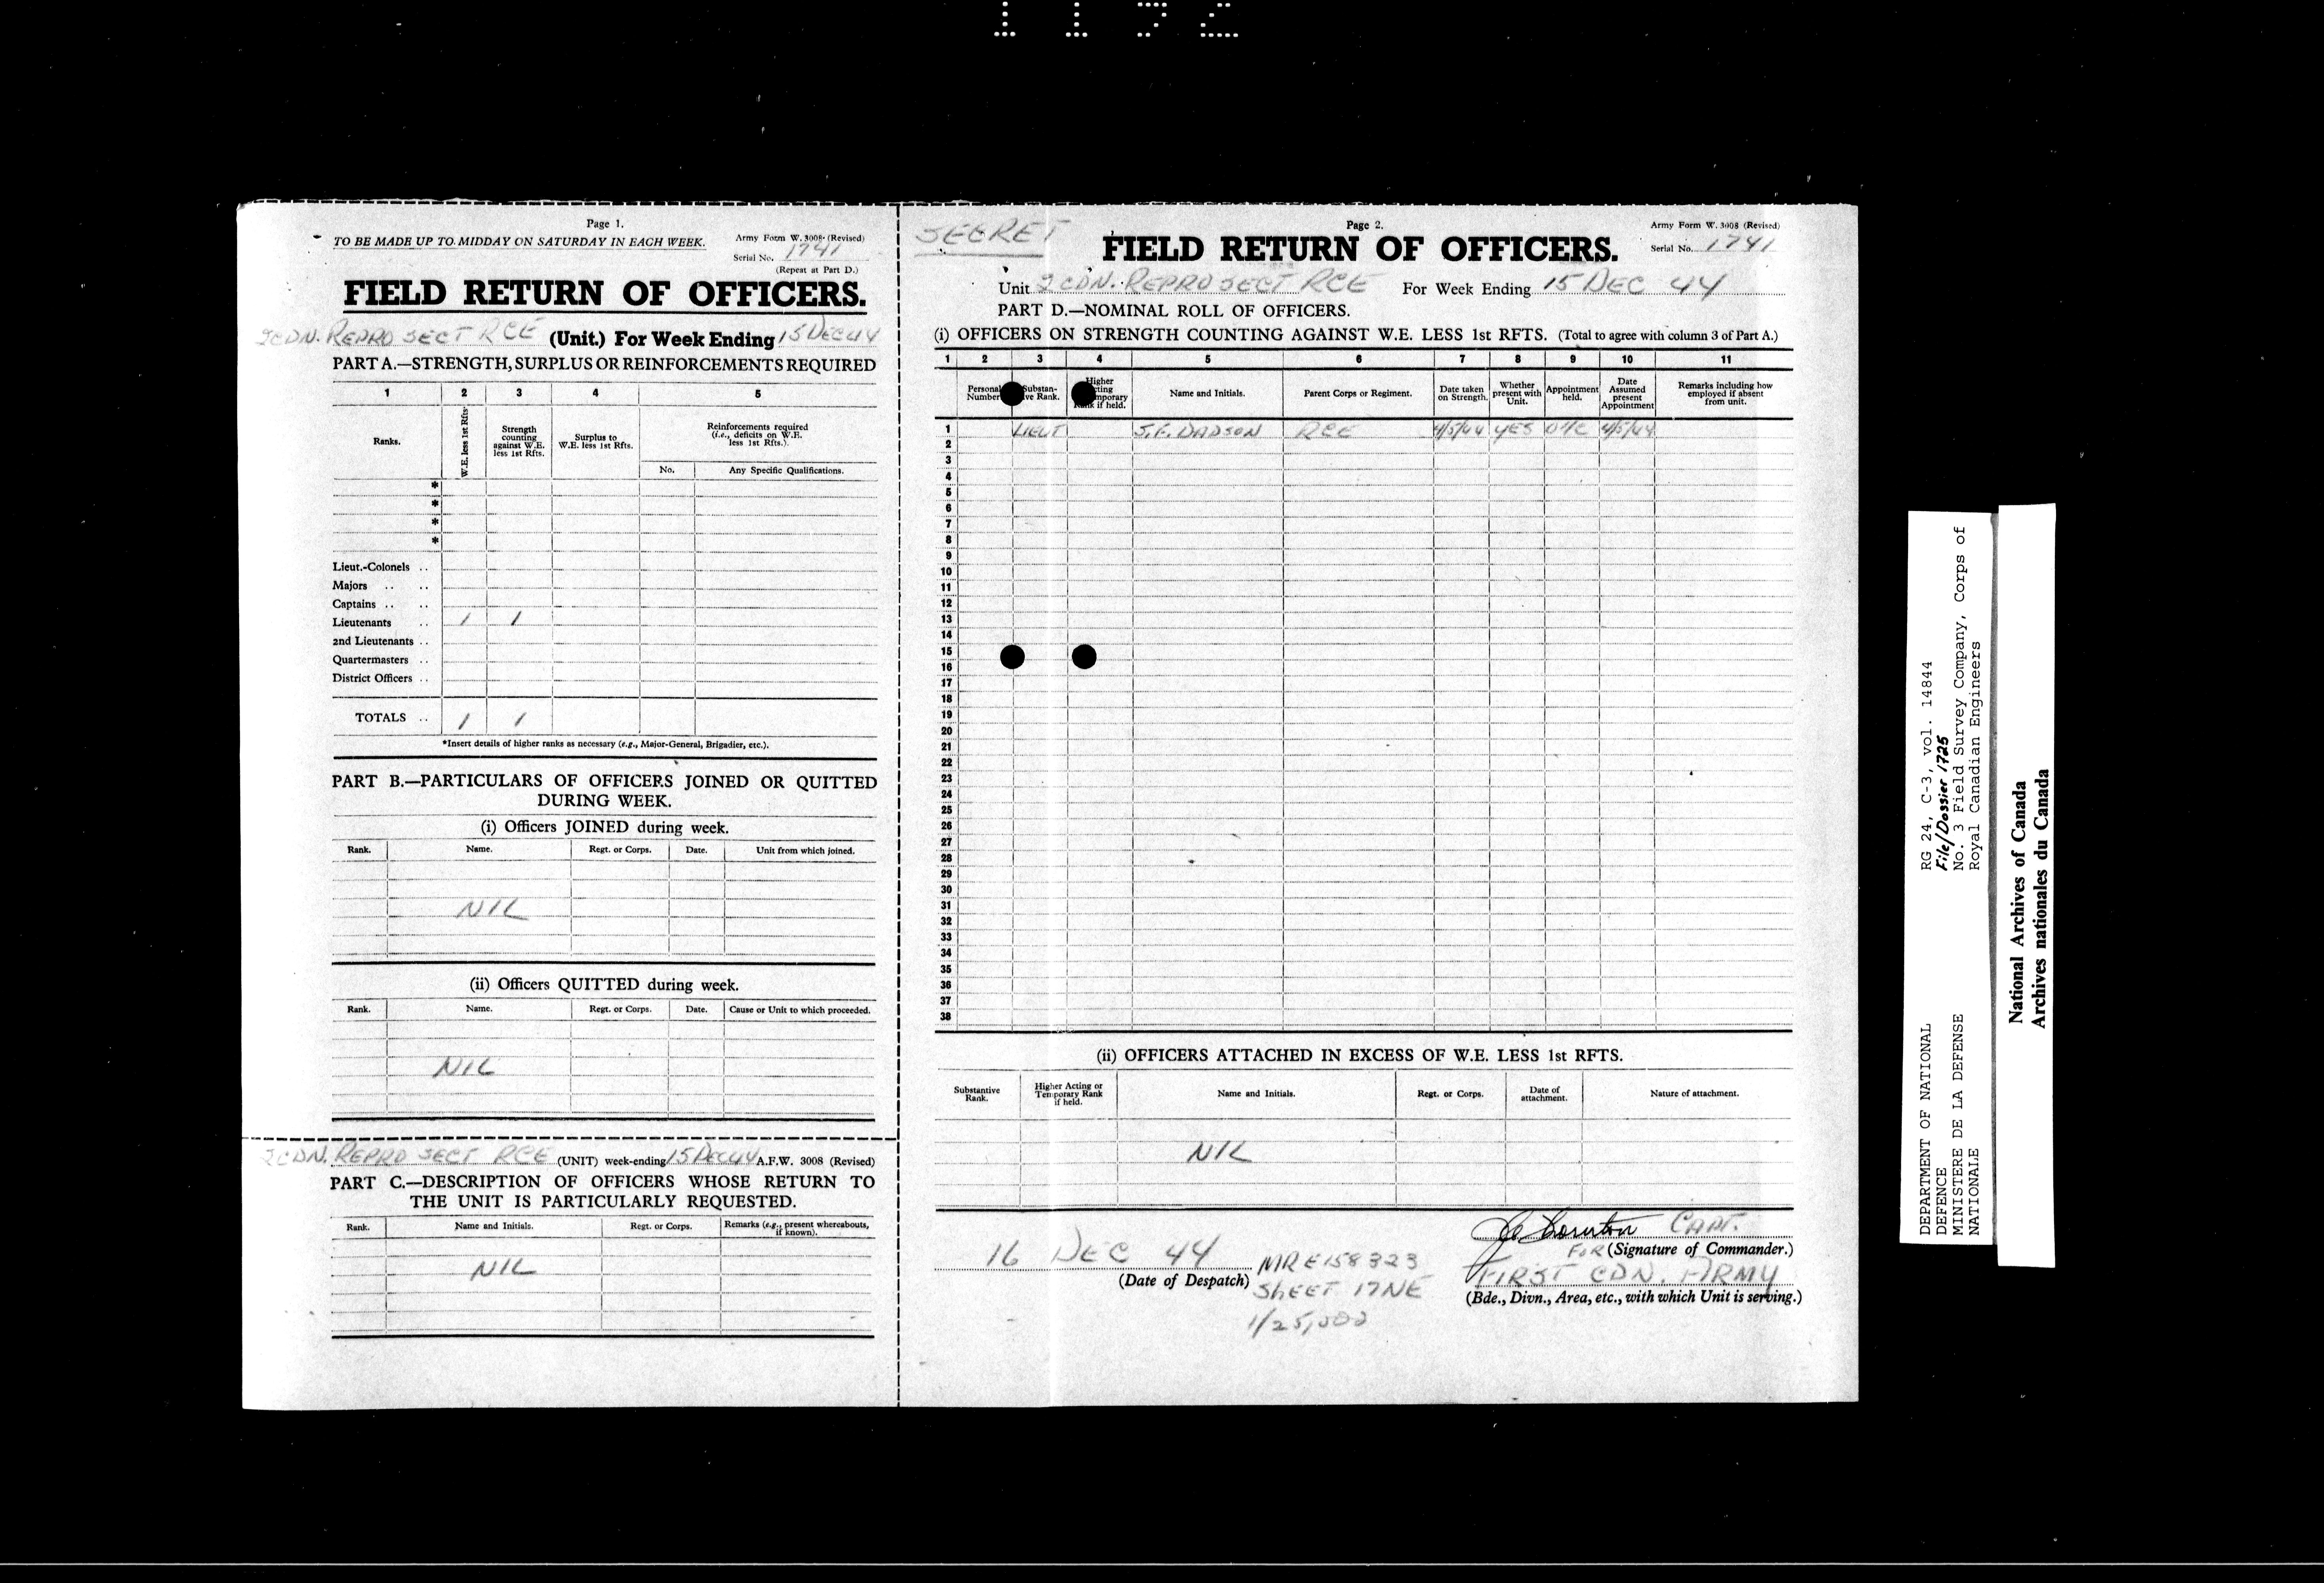 1192
Page 1.
TO BE MADE UP TO MIDDAY ON SATURDAY IN EACH WEEK.
Army Form W. 3008 (Revised)
Serial No. 1741
(Repeat at Part D.)
FIELD RETURN OF OFFICERS.
2 CDN. REPRO SECT RCE (Unit.) For Week Ending 15 DEC 44
PART A.—STRENGTH, SURPLUS OR REINFORCEMENTS REQUIRED
1 2 3 4 5
Ranks.
W.E. less 1st Rfts.
Strength counting against W.E. less 1st Rfts.
Surplus to W.E. less 1st Rfts.
Reinforcements required (i.e., deficits on W.E. less 1st Rfts.).
No. Any Specific Qualifications.
*
*
*
*
Lieut.-Colonels ..
Majors .. ..
Captains .. ..
Lieutenants .. 1 1
2nd Lieutenants ..
Quartermasters ..
District Officers ..
TOTALS .. 1 1
*Insert details of higher ranks as necessary (e.g., Major-General, Brigadier, etc.).
PART B.—PARTICULARS OF OFFICERS JOINED OR QUITTED
DURING WEEK.
(i) Officers JOINED during week.
Rank. Name. Regt. or Corps. Date. Unit from which joined.
NIL
(ii) Officers QUITTED during week.
Rank. Name. Regt. or Corps. Date. Cause or Unit to which proceeded.
NIL
2 CDN. REPRO SECT RCE (UNIT) week-ending 15 DEC 44 A.F.W. 3008 (Revised)
PART C.—DESCRIPTION OF OFFICERS WHOSE RETURN TO
THE UNIT IS PARTICULARLY REQUESTED.
Rank. Name and Initials. Regt. or Corps. Remarks (e.g., present whereabouts, if known).
NIL
SECRET
Page 2.
Army Form W. 3008 (Revised)
Serial No. 1741
FIELD RETURN OF OFFICERS.
Unit 2 CDN. REPRO SECT RCE For Week Ending 15 DEC 44
PART D.—NOMINAL ROLL OF OFFICERS.
(i) OFFICERS ON STRENGTH COUNTING AGAINST W.E. LESS 1st RFTS. (Total to agree with column 3 of Part A.)
1 2 3 4 5 6 7 8 9 10 11
Personal Number
Substantive Rank.
Higher Acting Temporary Rank if held.
Name and Initials.
Parent Corps or Regiment.
Date taken on Strength.
Whether present with Unit.
Appointment held.
Date Assumed present Appointment
Remarks including how employed if absent from unit.
1 LIEUT J.F. DADSON RCE 4/5/44 YES O i/c 4/5/44
2
3
4
5
6
7
8
9
10
11
12
13
14
15
16
17
18
19
20
21
22
23
24
25
26
27
28
29
30
31
32
33
34
35
36
37
38
(ii) OFFICERS ATTACHED IN EXCESS OF W.E. LESS 1st RFTS.
Substantive Rank.
Higher Acting or Temporary Rank if held.
Name and Initials.
Regt. or Corps.
Date of attachment.
Nature of attachment.
NIL
16 DEC 44
(Date of Despatch)
MR E158323
SHEET 17NE
1/25,000
Thornton CAPT.
FOR (Signature of Commander.)
FIRST CDN. ARMY
(Bde., Divn., Area, etc., with which Unit is serving.)
DEPARTMENT OF NATIONAL
DEFENCE
MINISTERE DE LA DEFENSE
NATIONALE
RG 24, C-3, vol. 14844
File/Dossier 1725
No. 3 Field Survey Company, Corps of
Royal Canadian Engineers
National Archives of Canada
Archives nationales du Canada